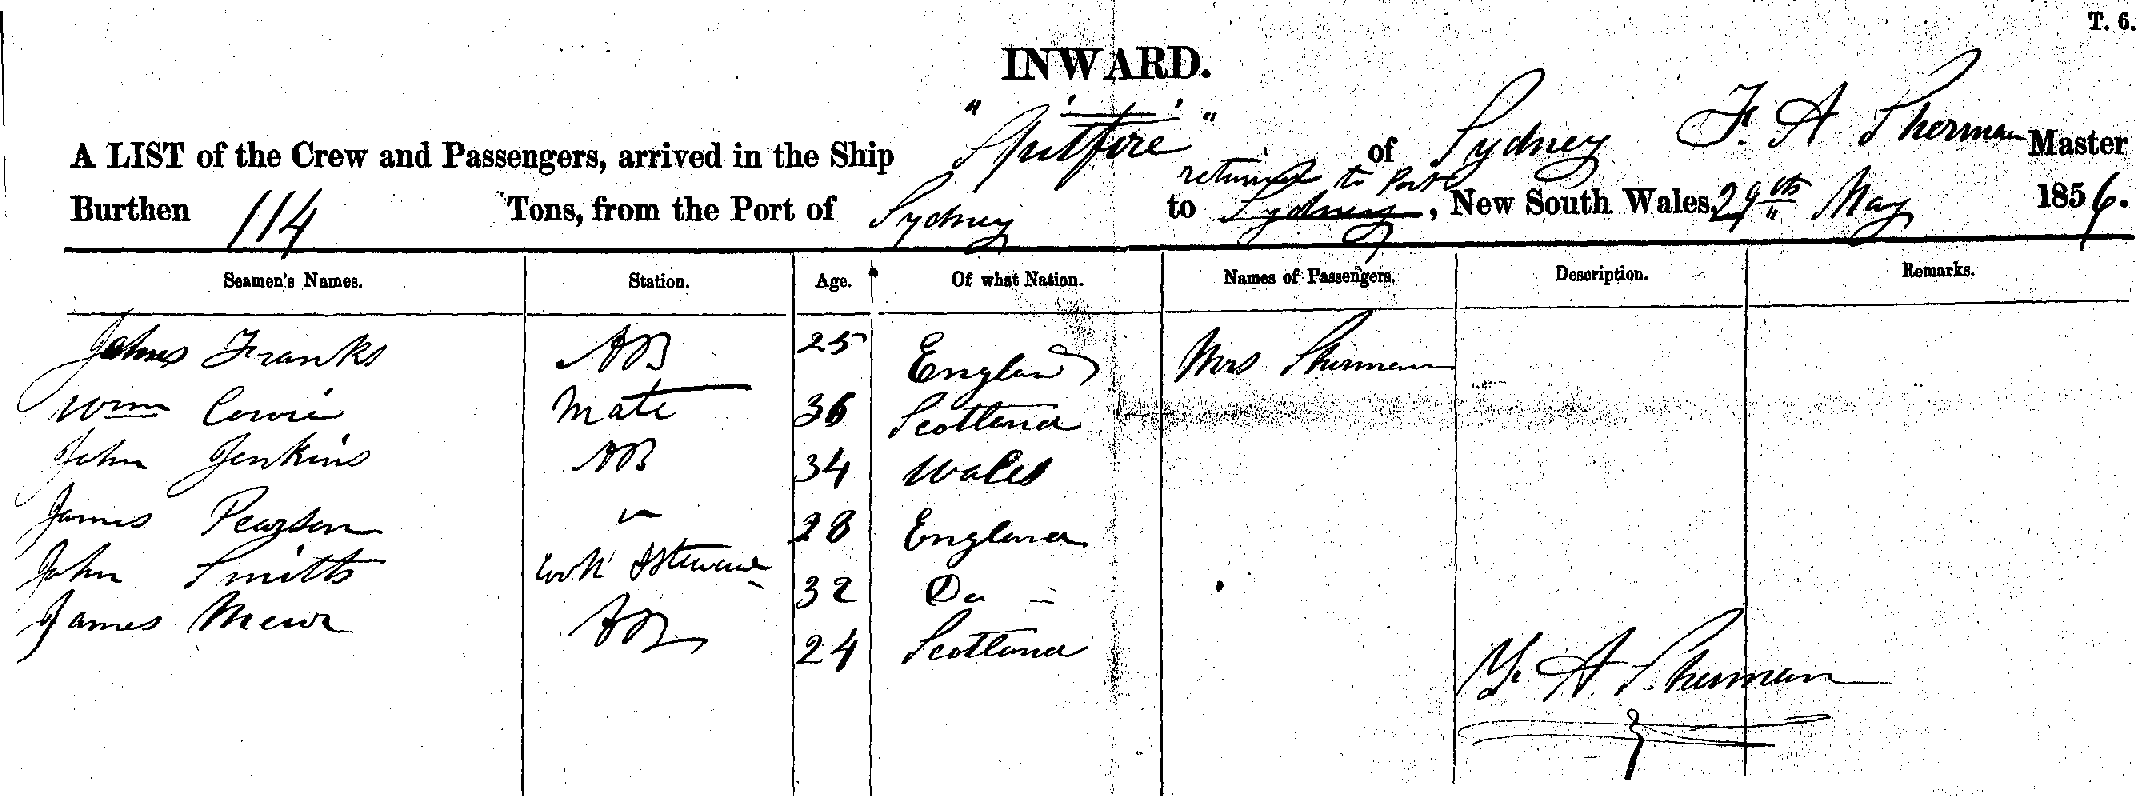 T. 6.
INWARD.
A LIST of the Crew and Passengers, arrived in the Ship "Spitfire" of Sydney F. A Sherman Master
returned to Port
Burthen 114 Tons, from the Port of Sydney to Sydney, New South Wales, 29th May 1856.
Seamen's Names. Station. Age. Of what Nation. Names of Passengers. Description. Remarks.
Franks AB 25 England Mrs Sherman
Wm Cowie Mate 36 Scotland
John Jenkins AB 34 Wales
James Pearson " 28 England
John Smitts Cook & Steward 32 Do
James AB 24 Scotland
A Sherman